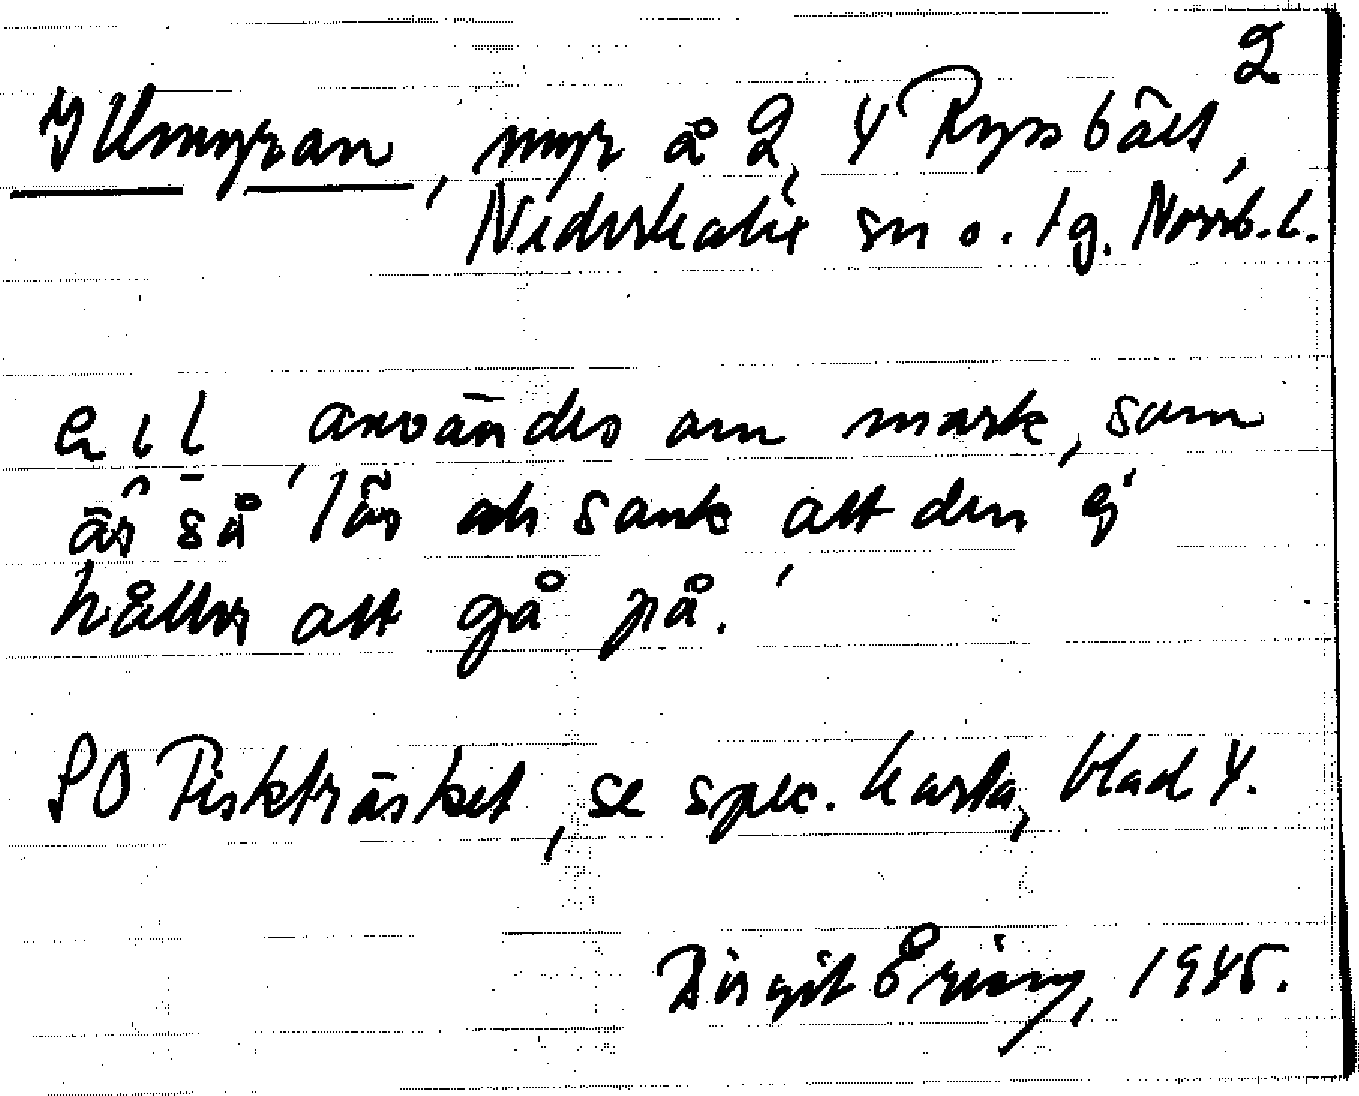 2
Illmyran, myr å 2, 4 Rysbält,
Nederkalix sn o. tg. Norrb. l.
användes om mark, som
är så lös och sank att den ej
håller att gå på.
SO Fiskträsket, se spec. karta, blad 4.
Birgit Eriony, 1945.